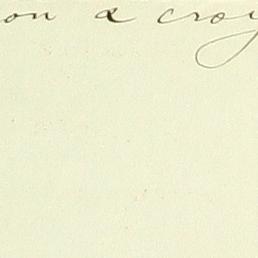 on a croy